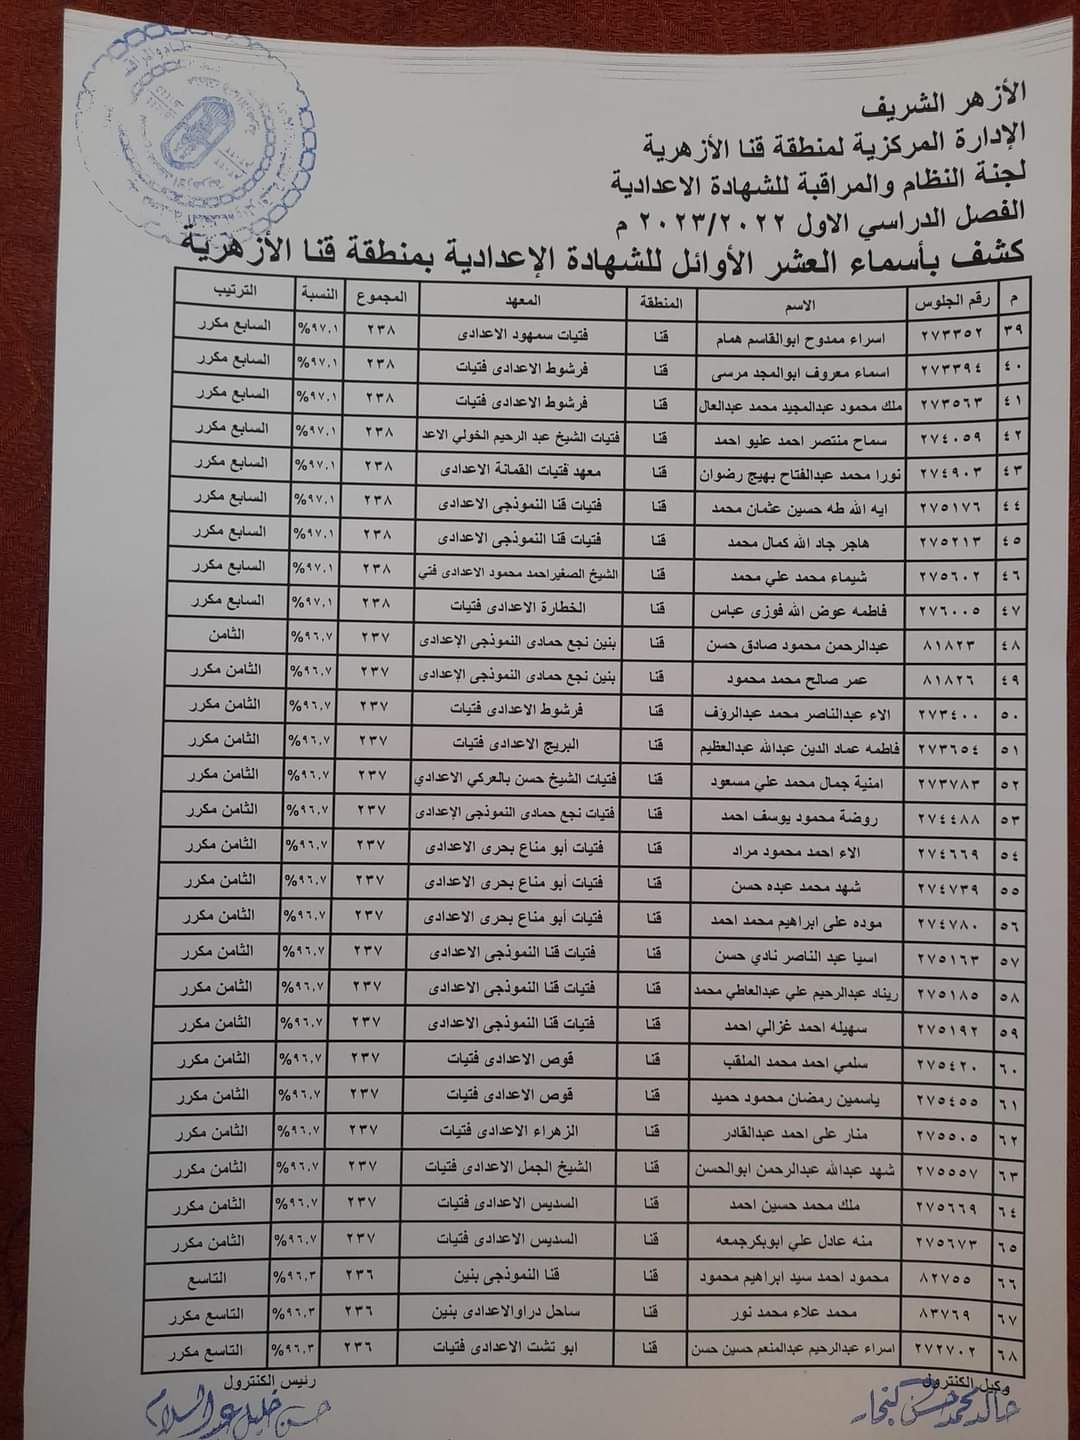 الأزهر الشريف
الإدارة المركزية لمنطقة قنا الأزهرية
لجنة النظام والمراقبة للشهادة الاعدادية
الفصل الدراسي الاول ٢٠٢٣/٢٠٢٢ م
كشف بأسماء العشر الأوائل للشهادة الإعدادية بمنطقة قنا الأزهرية
م رقم الجلوس الاسم المنطقة المعهد المجموع النسبة الترتيب
٣٩ ٢٧٣٣٥٢ اسراء ممدوح ابوالقاسم همام قنا فتيات سمهود الاعدادى ٢٣٨ ٩٧.١% السابع مكرر
٤٠ ٢٧٣٣٩٤ اسماء معروف ابوالمجد مرسى قنا فرشوط الاعدادى فتيات ٢٣٨ ٩٧.١% السابع مكرر
٤١ ٢٧٣٥٦٣ ملك محمود عبدالمجيد محمد عبدالعال قنا فرشوط الاعدادى فتيات ٢٣٨ ٩٧.١% السابع مكرر
٤٢ ٢٧٤٠٥٩ سماح منتصر احمد عليو احمد قنا فتيات الشيخ عبد الرحيم الخولي الاعد ٢٣٨ ٩٧.١% السابع مكرر
٤٣ ٢٧٤٩٠٣ نورا محمد عبدالفتاح بهيج رضوان قنا معهد فتيات القمانة الاعدادى ٢٣٨ ٩٧.١% السابع مكرر
٤٤ ٢٧٥١٧٦ ايه الله طه حسين عثمان محمد قنا فتيات قنا النموذجى الاعدادى ٢٣٨ ٩٧.١% السابع مكرر
٤٥ ٢٧٥٢١٣ هاجر جاد الله كمال محمد قنا فتيات قنا النموذجى الاعدادى ٢٣٨ ٩٧.١% السابع مكرر
٤٦ ٢٧٥٦٠٢ شيماء محمد علي محمد قنا الشيخ الصغيراحمد محمود الاعدادى فتي ٢٣٨ ٩٧.١% السابع مكرر
٤٧ ٢٧٦٠٠٥ فاطمه عوض الله فوزى عباس قنا الخطارة الاعدادى فتيات ٢٣٨ ٩٧.١% السابع مكرر
٤٨ ٨١٨٢٣ عبدالرحمن محمود صادق حسن قنا بنين نجع حمادى النموذجى الإعدادى ٢٣٧ ٩٦.٧% الثامن
٤٩ ٨١٨٢٦ عمر صالح محمد محمود قنا بنين نجع حمادى النموذجى الإعدادى ٢٣٧ ٩٦.٧% الثامن مكرر
٥٠ ٢٧٣٤٠٠ الاء عبدالناصر محمد عبدالرؤف قنا فرشوط الاعدادى فتيات ٢٣٧ ٩٦.٧% الثامن مكرر
٥١ ٢٧٣٦٥٤ فاطمه عماد الدين عبدالله عبدالعظيم قنا البريج الاعدادى فتيات ٢٣٧ ٩٦.٧% الثامن مكرر
٥٢ ٢٧٣٧٨٣ امنية جمال محمد علي مسعود قنا فتيات الشيخ حسن بالعركي الاعدادي ٢٣٧ ٩٦.٧% الثامن مكرر
٥٣ ٢٧٤٤٨٨ روضة محمود يوسف احمد قنا فتيات نجع حمادى النموذجى الإعدادى ٢٣٧ ٩٦.٧% الثامن مكرر
٥٤ ٢٧٤٦٦٩ الاء احمد محمود مراد قنا فتيات أبو مناع بحرى الاعدادى ٢٣٧ ٩٦.٧% الثامن مكرر
٥٥ ٢٧٤٧٣٩ شهد محمد عبده حسن قنا فتيات أبو مناع بحرى الاعدادى ٢٣٧ ٩٦.٧% الثامن مكرر
٥٦ ٢٧٤٧٨٠ موده على ابراهيم محمد احمد قنا فتيات أبو مناع بحرى الاعدادى ٢٣٧ ٩٦.٧% الثامن مكرر
٥٧ ٢٧٥١٦٣ اسيا عبد الناصر نادي حسن قنا فتيات قنا النموذجى الاعدادى ٢٣٧ ٩٦.٧% الثامن مكرر
٥٨ ٢٧٥١٨٥ ريناد عبدالرحيم علي عبدالعاطي محمد قنا فتيات قنا النموذجى الاعدادى ٢٣٧ ٩٦.٧% الثامن مكرر
٥٩ ٢٧٥١٩٢ سهيله احمد غزالي احمد قنا فتيات قنا النموذجى الاعدادى ٢٣٧ ٩٦.٧% الثامن مكرر
٦٠ ٢٧٥٤٢٠ سلمي احمد محمد الملقب قنا قوص الاعدادى فتيات ٢٣٧ ٩٦.٧% الثامن مكرر
٦١ ٢٧٥٤٥٥ ياسمين رمضان محمود حميد قنا قوص الاعدادى فتيات ٢٣٧ ٩٦.٧% الثامن مكرر
٦٢ ٢٧٥٥٠٥ منار على احمد عبدالقادر قنا الزهراء الاعدادى فتيات ٢٣٧ ٩٦.٧% الثامن مكرر
٦٣ ٢٧٥٥٥٧ شهد عبدالله عبدالرحمن ابوالحسن قنا الشيخ الجمل الاعدادى فتيات ٢٣٧ ٩٦.٧% الثامن مكرر
٦٤ ٢٧٥٦٦٩ ملك محمد حسين احمد قنا السديس الاعدادى فتيات ٢٣٧ ٩٦.٧% الثامن مكرر
٦٥ ٢٧٥٦٧٣ منه عادل علي ابوبكرجمعه قنا السديس الاعدادى فتيات ٢٣٧ ٩٦.٧% الثامن مكرر
٦٦ ٨٢٧٥٥ محمود احمد سيد ابراهيم محمود قنا قنا النموذجى بنين ٢٣٦ ٩٦.٣% التاسع
٦٧ ٨٣٧٦٩ محمد علاء محمد نور قنا ساحل دراوالاعدادى بنين ٢٣٦ ٩٦.٣% التاسع مكرر
٦٨ ٢٧٢٧٠٢ اسراء عبدالرحيم عبدالمنعم حسين حسن قنا ابو تشت الاعدادى فتيات ٢٣٦ ٩٦.٣% التاسع مكرر
وكيل الكنترول رئيس الكنترول
خالد محمد حسن حسن خليل عبد السلام